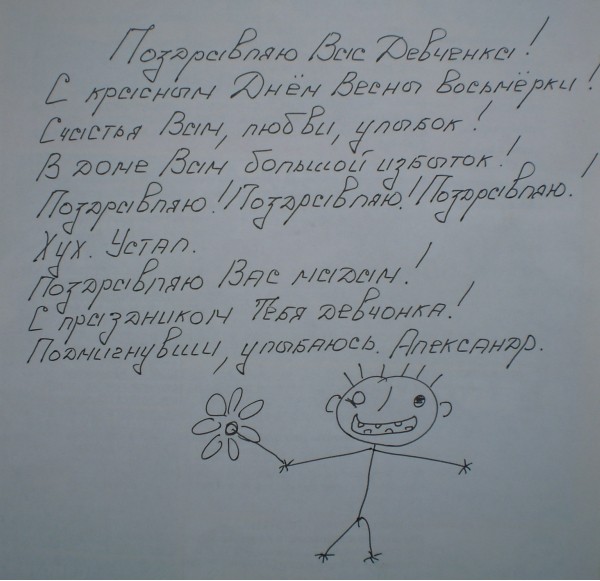 Поздравляю Вас Девченка!
С красным Днём Весны восьмёрки!
Счастья Вам, любви, улыбок!
В доме Вам большой избыток!
Поздравляю! Поздравляю! Поздравляю!
Хух. Устал.
Поздравляю Вас мадам!
С праздником Тебя девчонка!
Подмигнувши, улыбаюсь. Александр.